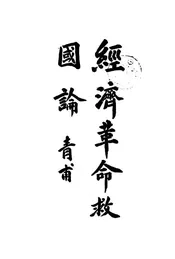 經濟革命救
國論
青甫